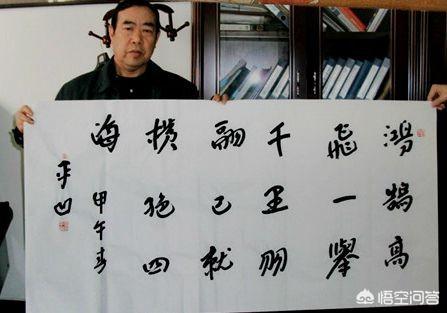 鸿鹄高
飛一舉
千里羽
翮已就
横绝四
海 甲午春
平凹
悟空问答